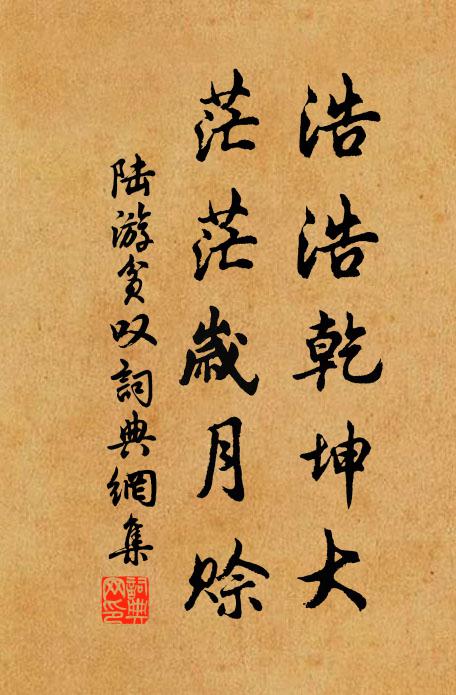 浩浩乾坤大
茫茫歲月賒
陆游貧叹詞典網集
詞典网印